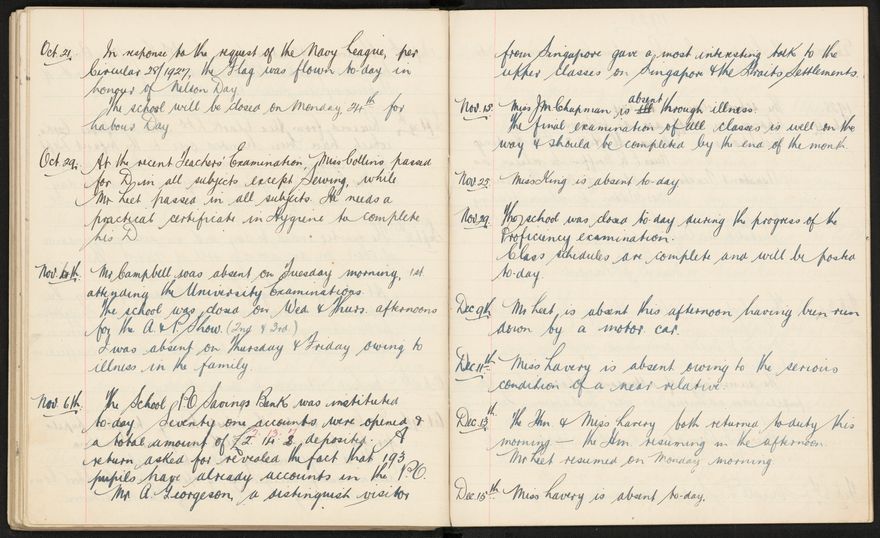 Oct. 21. In response to the request of the Navy League, per
Circular 28/1927, the Flag was flown to-day in
honour of Nelson Day
The school will be closed on Monday, 24th for
Labour Day.
Oct. 29. At the recent Teachers' Examination, Miss Collins passed
for D, in all subjects except Sewing, while
Mr Leet passed in all subjects. He needs a
practical certificate in Hygiene to complete
his D
Nov 4th. Mr Campbell was absent on Tuesday morning, 1st
attending the University Examinations.
The school was closed on Wed. & Thurs. afternoons
for the A. & P. Show. (2nd & 3rd)
I was absent on Thursday & Friday owing to
illness in the family.
Nov. 6th. The School P.O Savings Bank was instituted
to-day Seventy one accounts were opened &
a total amount of deposited. A
return asked for revealed the fact that 193
pupils have already accounts in the P.O.
Mr A. Georgeson, a distinguish visitor
from Singapore gave a most interesting talk to the
upper classes on Singapore & the Straits Settlements.
Nov. 15. Miss J.M. Chapman, is absent through illness.
The final examination of all classes is well on the
way & should be completed by the end of the month.
Nov. 25. Miss King is absent to-day
Nov. 29. The school was closed to-day during the progress of the
Proficiency examination.
Class schedules are complete and will be posted
to-day.
Dec 9th Mr Leet, is absent this afternoon having been run
down by a motor car.
Dec 11th Miss Lavery is absent owing to the serious
condition of a near relative.
Dec. 13th The Hm. & Miss Lavery both returned to duty this
morning – the Hm. resuming in the afternoon.
Mr Leet resumed on Monday morning
Dec. 15th Miss Lavery is absent to-day.